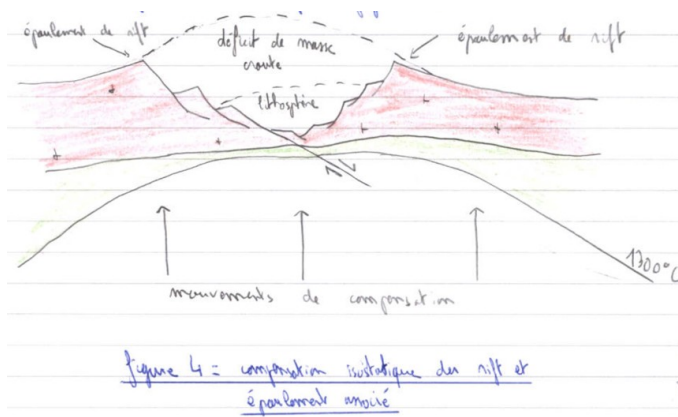 épaulement de rift
déficit de masse
croute
épaulement de rift
lithosphère
1300°C
mouvements de compensation
figure 4 = compensation isostatique du rift et
épaulement associé